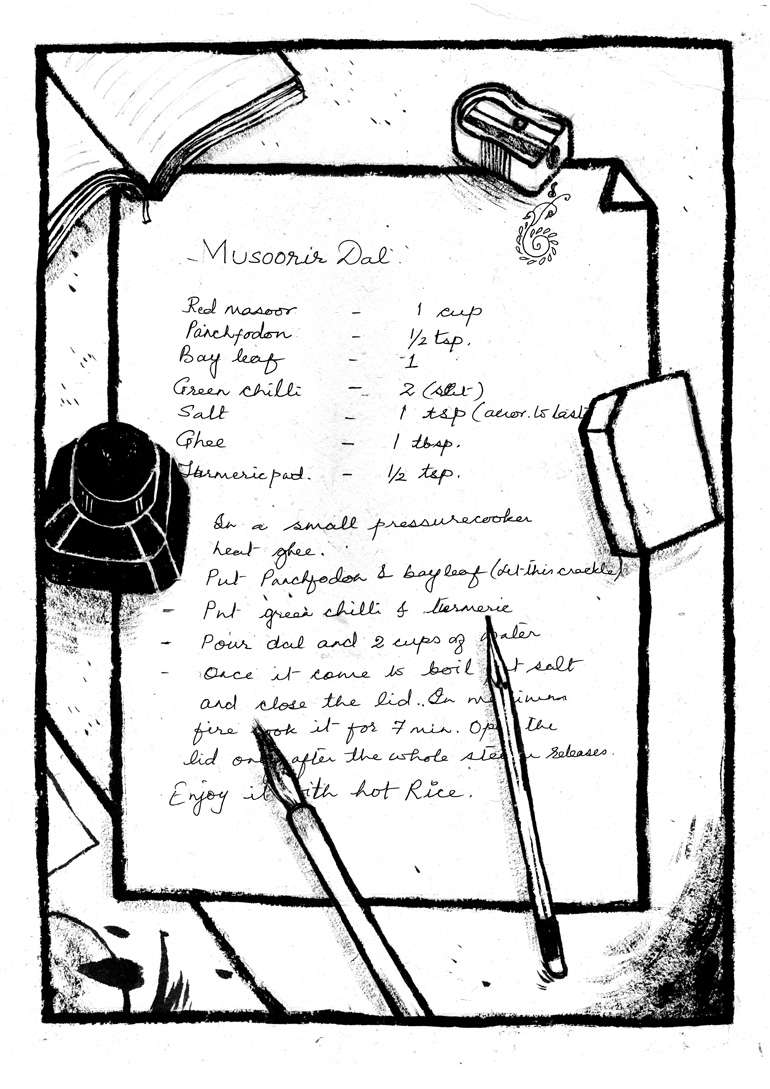 Musoorir Dal
Red masoor - 1 cup
Panchfodon - 1/2 tsp.
Bay leaf - 1
Green chilli - 2 (slit)
Salt - 1 tsp (accor. to tast
Ghee - 1 tbsp.
Turmeric pad. - 1/2 tsp.
In a small pressurecooker
heat ghee.
Put Panchfodon & bayleaf (let this crackle)
- Put green chilli & turmeric
- Pour dal and 2 cups of water
- Once it come to boil salt
and close the lid. In
fire it for 7 min. the
lid after the whole releases.
Enjoy it with hot Rice.